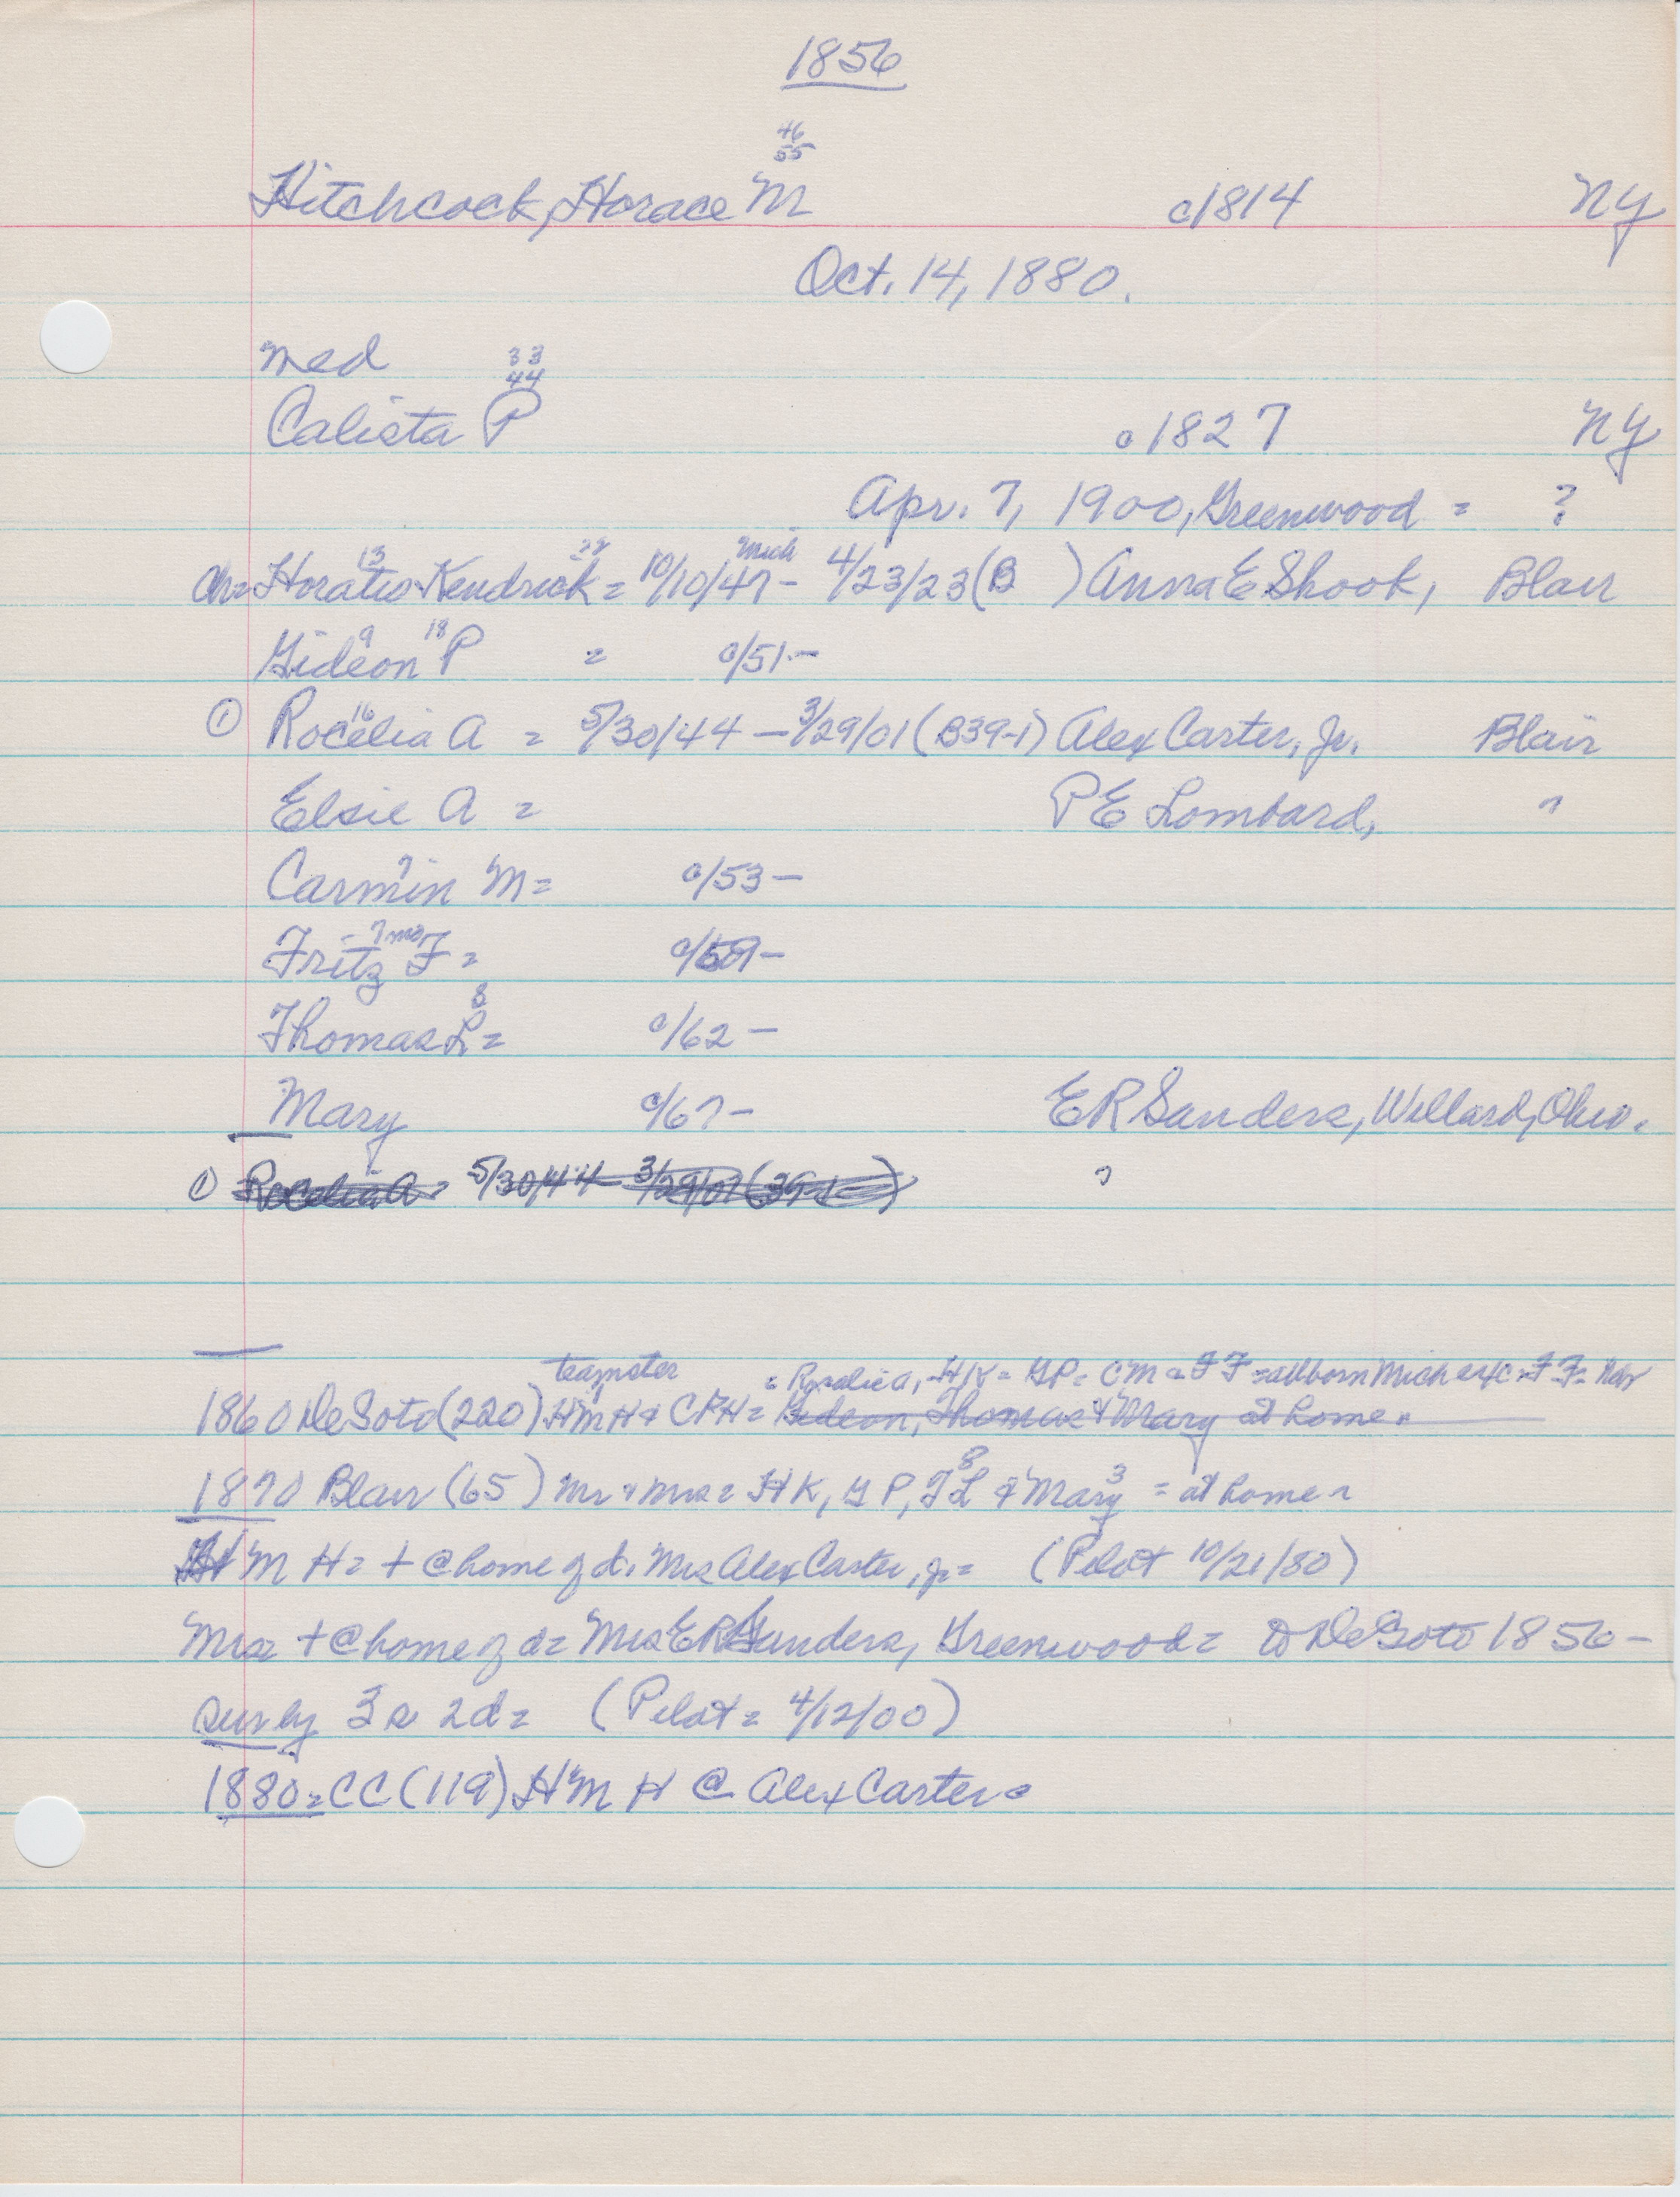 1856
46
55
Hitchcock, Horace M c1814 NY
Oct. 14, 1880.
med 33
44
Calista P c1827 NY
Apr. 7, 1900, Greenwood = ?
13 22 Mich
ch= Horatio Kendrick = 10/10/47 - 4/23/23 (B ) Anna E Shook, Blair
9 18
Gideon P = c/51 -
16
① Rocelia A = 5/30/44 - 3/29/01 (B39-1) Alex Carter, Jr. Blair
Elsie A = P E Lombard, "
7
Carmin M = c/53 -
7 mo
Fritz F = c/59 -
8
Thomas L = c/62 -
Mary c/67 - E R Sanders, Willard, Ohio.
① Rocelia A = 5/30/44 - 3/29/01 (39-1) "
teamster = Rosalie A, HK = GP = CM = FF = all born Mich exc = FF = Nebr
1860 DeSoto (220) HMH & CPH = Gideon, Thomas & Mary at home.
8 3
1870 Blair (65) Mr & Mrs = HK, GP, TL & Mary = at home
H M H = + @ home of d. Mrs Alex Carter, Jr = (Pilot 10/21/80)
Mrs + @ home of d = Mrs E R Sanders, Greenwood = to DeSoto 1856 -
surv by 3 s 2 d = (Pilot = 4/12/00)
1880 = CC (119) H M H @ Alex Carters